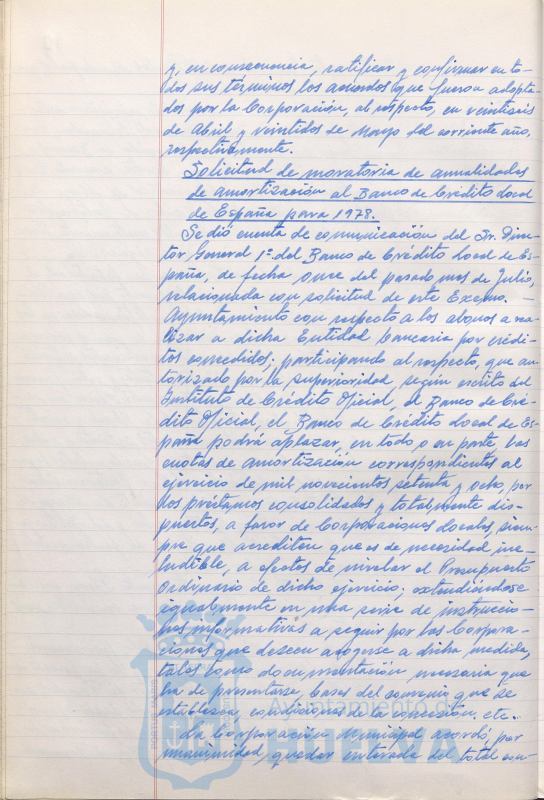 y, en consecuencia, ratificar y confirmar en to-
dos sus términos los acuerdos que fueron adopta-
dos por la Corporación, al respecto, en veintiseis
de Abril y veintidos de Mayo del corriente año,
respectivamente.
Solicitud de moratoria de anualidades
de amortización al Banco de Crédito Local
de España para 1978.
Se dió cuenta de comunicación del Sr. Direc-
tor General 1º del Banco de Crédito Local de Es-
paña, de fecha once del pasado mes de Julio,
relacionada con solicitud de este Excmo. -
Ayuntamiento con respecto a los abonos a rea-
lizar a dicha Entidad bancaria por crédi-
tos concedidos; participando al respecto, que au-
torizado por la superioridad, según escrito del
Instituto de Crédito Oficial, el Banco de Cré-
dito Oficial, el Banco de Crédito Local de Es-
paña podrá aplazar, en todo o en parte, las
cuotas de amortización correspondientes al
ejercicio de mil novecientos setenta y ocho, por
los préstamos consolidados y totalmente dis-
puestos, a favor de Corporaciones Locales, siem-
pre que acrediten que es de necesidad ine-
ludible, a efectos de nivelar el Presupuesto
Ordinario de dicho ejercicio; extendiéndose
igualmente en una serie de instruccio-
nes informativas a seguir por las Corpora-
ciones que deseen acogerse a dicha medida,
tales como documentación necesaria que
ha de presentarse, bases del convenio que se
establezca, condiciones de la concesión, etc.
La Corporación Municipal acordó, por
unanimidad, quedar enterada del total con-
Ayuntamiento de
HUELVA